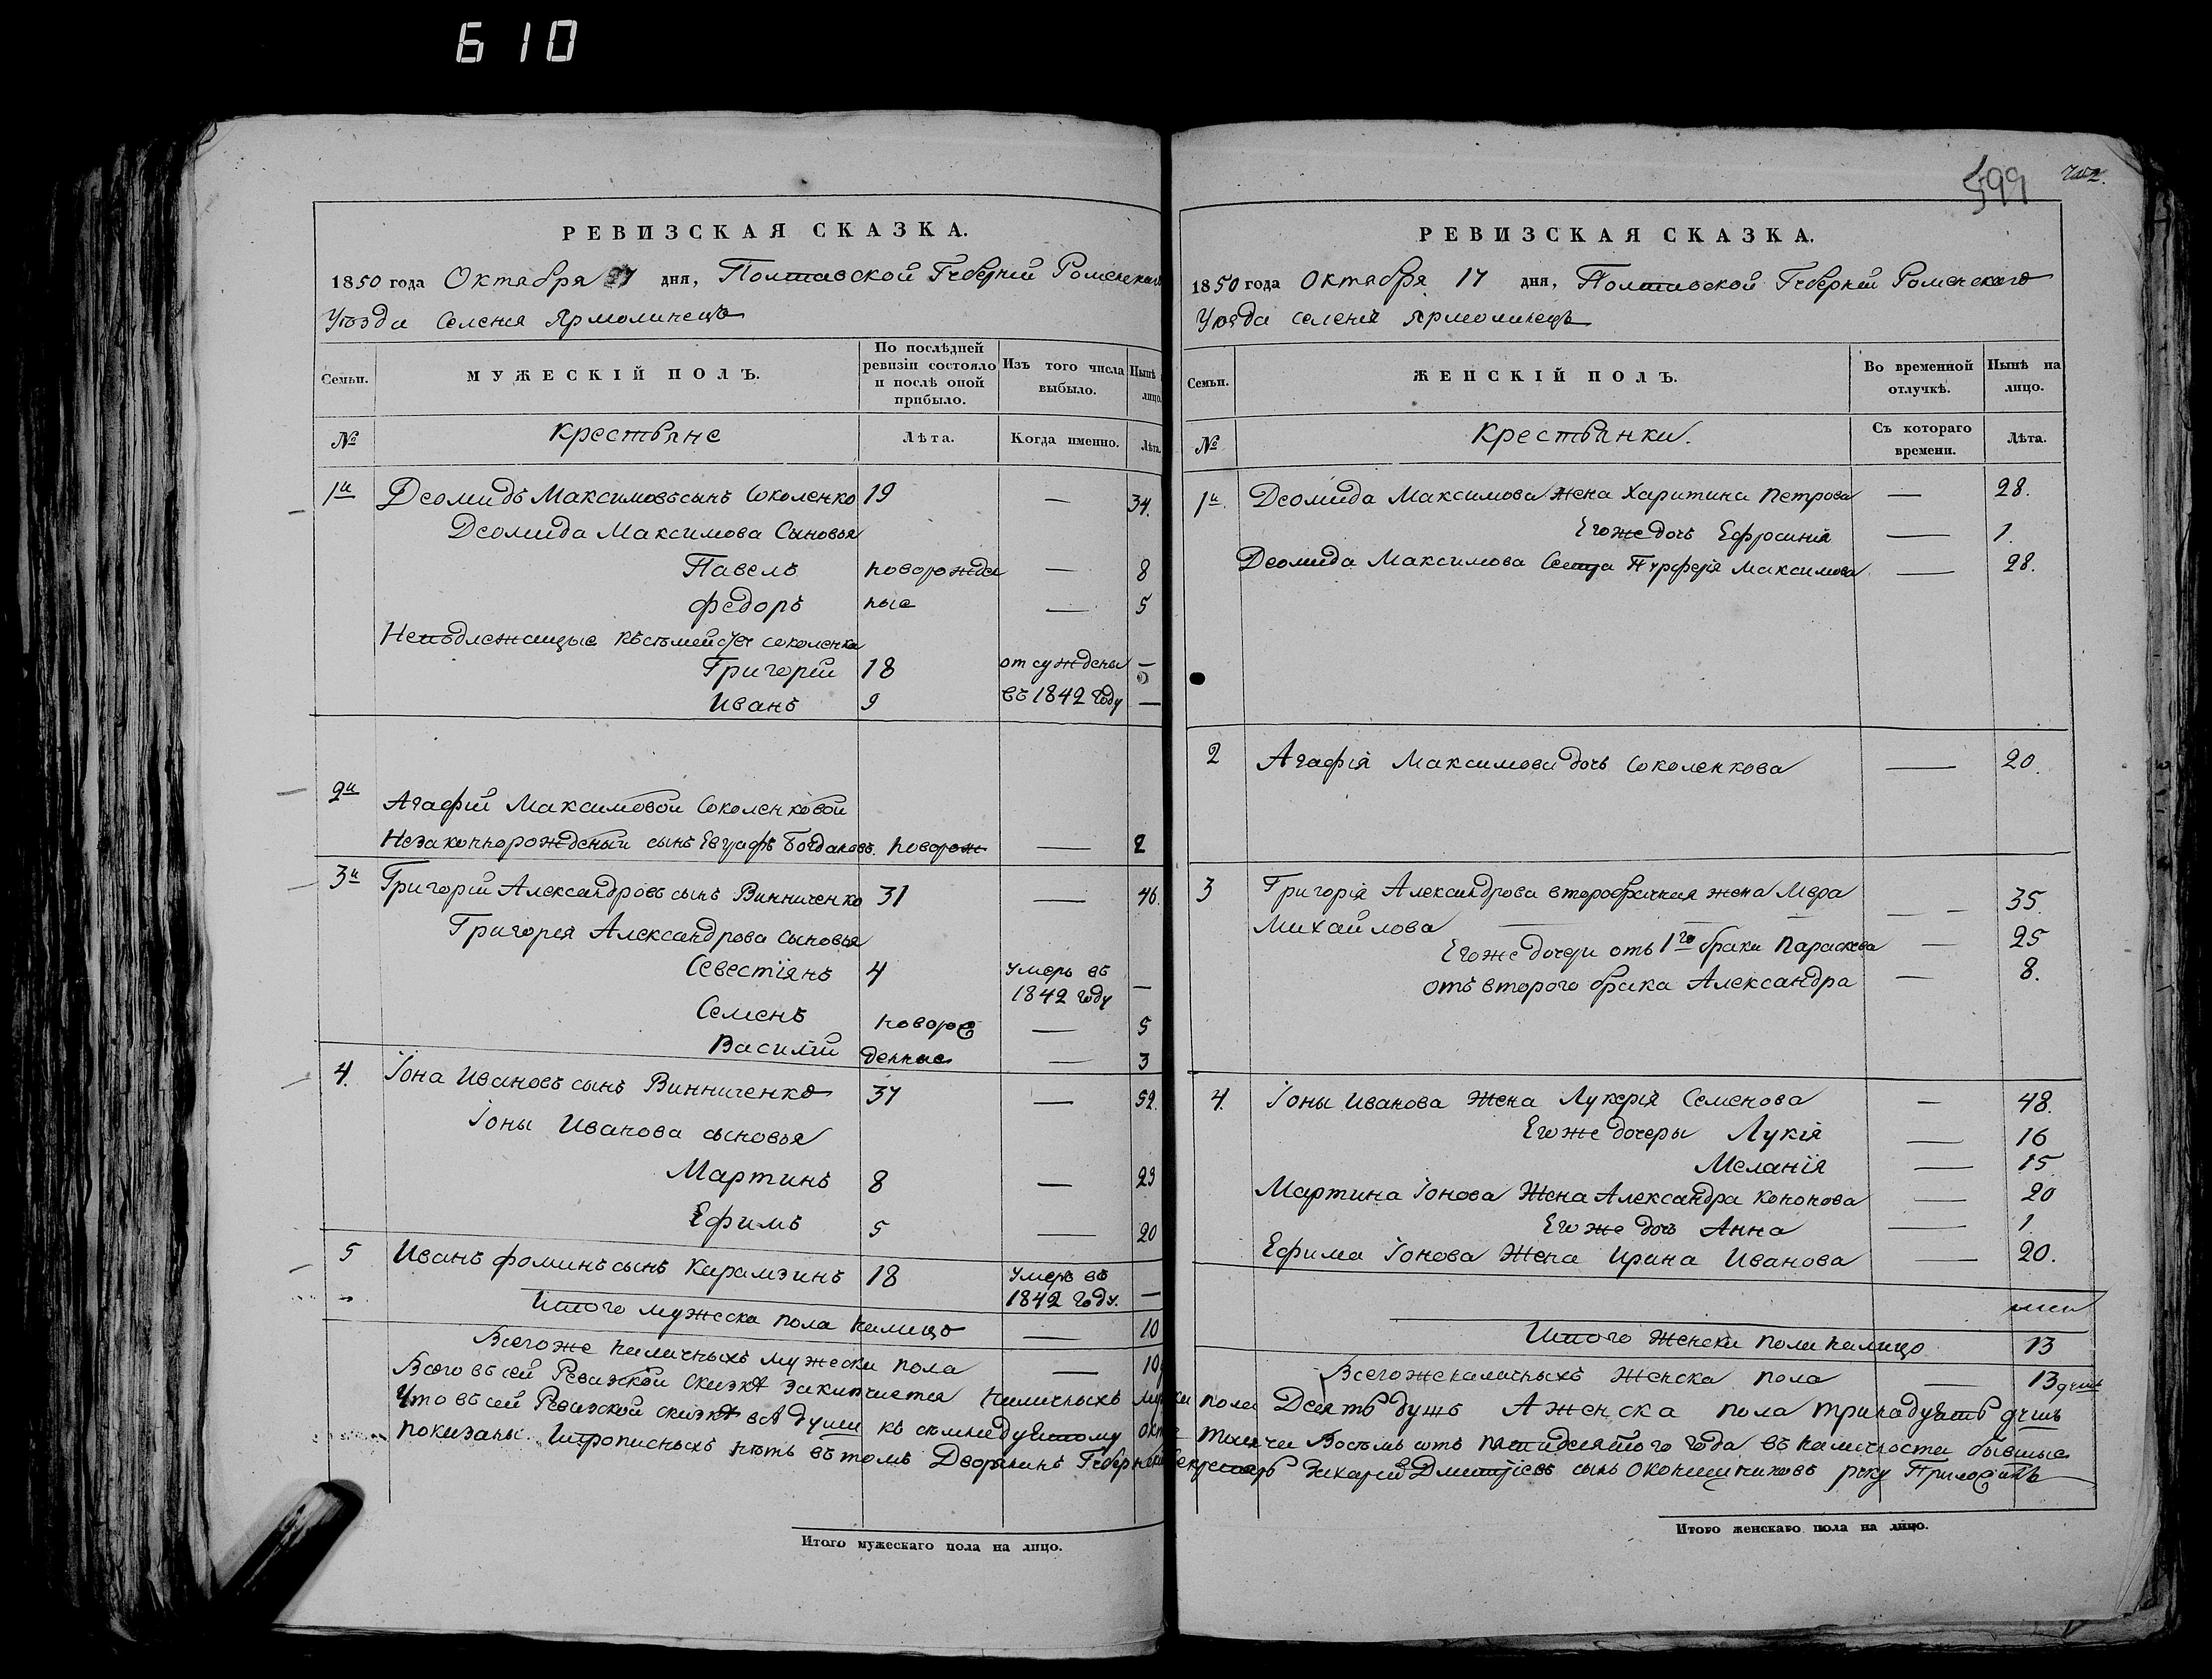 610
РЕВИЗСКАЯ СКАЗКА.
1850 года Октября 17 дня, Полтавской Губерніи Роменскаго
Уѣзда Селенія Ярмолинецъ
Семьи.
МУЖЕСКІЙ ПОЛЪ.
По послѣдней ревизіи состояло и послѣ оной прибыло.
Изъ того числа выбыло.
Нынѣ лицо.
№ Крестьяне Лѣта. Когда именно. Лѣта.
1й Деомидъ Максимовъ сынъ Соколенко 19 — 34.
Деомида Максимова Сыновья
Павелъ новорожде — 8
Федоръ ные — 5
Григорій 18 отсуждены —
Иванъ 9 въ 1842 году —
2й Агафіи Максимовой Соколенковой
Незаконнорожденый сынъ Евграфъ Богдановъ. новорож — 2
3й Григорій Александровъ сынъ Винниченко 31 — 46.
Григорія Александрова сыновья
Севестіянъ 4 умеръ въ 1842 году —
Семенъ новорож — 5
Василій денные — 3
4. Іона Ивановъ сынъ Винниченко 37 — 52.
Іоны Иванова сыновья
Мартинъ 8 — 23
Ефимъ 5 — 20
5 Иванъ Фоминъ сынъ Карамзинъ 18 умеръ въ 1842 году. —
Итого мужеска пола налицо — 10
Всего же наличныхъ мужеска пола — 10
599
РЕВИЗСКАЯ СКАЗКА.
1850 года Октября 17 дня, Полтавской Губерніи Роменскаго
Уѣзда селенія Ярмолинецъ
Семьи.
ЖЕНСКІЙ ПОЛЪ.
Во временной отлучкѣ.
Нынѣ на лицо.
№ Крестьянки. Съ котораго времени. Лѣта.
1й. Деомида Максимова жена Харитина Петрова — 28.
Его же дочь Ефросинія — 1.
Деомида Максимова Сестра Максимова — 28.
2 Агафія Максимова дочь Соколенкова — 20.
3 Григорія Александрова второбрачная жена Мавра
Михайлова — — 35.
Его же дочери отъ 1го брака Параскева — 25
отъ второго брака Александра — 8.
4. Іоны Иванова жена Лукерія Семенова — 48.
Его же дочеры Лукія — 16
Меланія — 15
Мартина Іонова Жена Александра Кононова — 20
Его же дочь Анна — 1
Ефима Іонова Жена Ирина Иванова — 20.
Итого женска пола налицо 13
Всего же наличныхъ женска пола — 13 душъ
Всего въ сей Ревизкой сказкѣ заключается наличныхъ мужска пола Десять душъ А женска пола тринадцать душъ
Что въ сей Ревизской сказкѣ всѣ души къ тысяча Восемь сотъ пятидесятого года въ наличности бывшые
показаны. И прописныхъ нѣтъ въ томъ Дворянинъ Губернскій Секретарь Захарій Дмитріевъ сынъ руку Приложилъ
Итого мужескаго пола на лицо.
Итого женскаго пола на лицо.